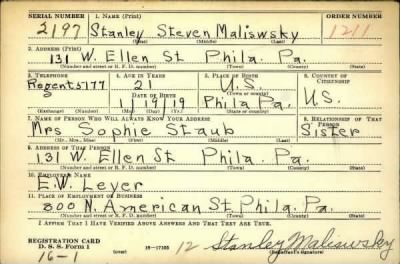 SERIAL NUMBER 1. NAME (Print) ORDER NUMBER
2197 Stanley Steven Maliswsky 1211
(First) (Middle) (Last)
2. ADDRESS (Print)
131 W. Ellen St Phila. Pa.
(Number and street or R. F. D. number) (Town) (County) (State)
3. TELEPHONE 4. AGE IN YEARS 5. PLACE OF BIRTH 6. COUNTRY OF CITIZENSHIP
Regent 5777 21 U.S. U.S.
DATE OF BIRTH (Town or county)
1 19 19 Phila Pa.
(Exchange) (Number) (Mo.) (Day) (Yr.) (State or country)
7. NAME OF PERSON WHO WILL ALWAYS KNOW YOUR ADDRESS 8. RELATIONSHIP OF THAT PERSON
Mrs Sophie Staub Sister
(Mr., Mrs., Miss) (First) (Middle) (Last)
9. ADDRESS OF THAT PERSON
131 W. Ellen St Phila. Pa.
(Number and street or R. F. D. number) (Town) (County) (State)
10. EMPLOYER'S NAME
E.W. Leyer
11. PLACE OF EMPLOYMENT OR BUSINESS
800 N. American St. Phila. Pa.
(Number and street or R. F. D. number) (Town) (County) (State)
I AFFIRM THAT I HAVE VERIFIED ABOVE ANSWERS AND THAT THEY ARE TRUE.
REGISTRATION CARD
D. S. S. Form 1 (over) 16—17105 12 Stanley Maliswsky
16-1 (Registrant's signature)